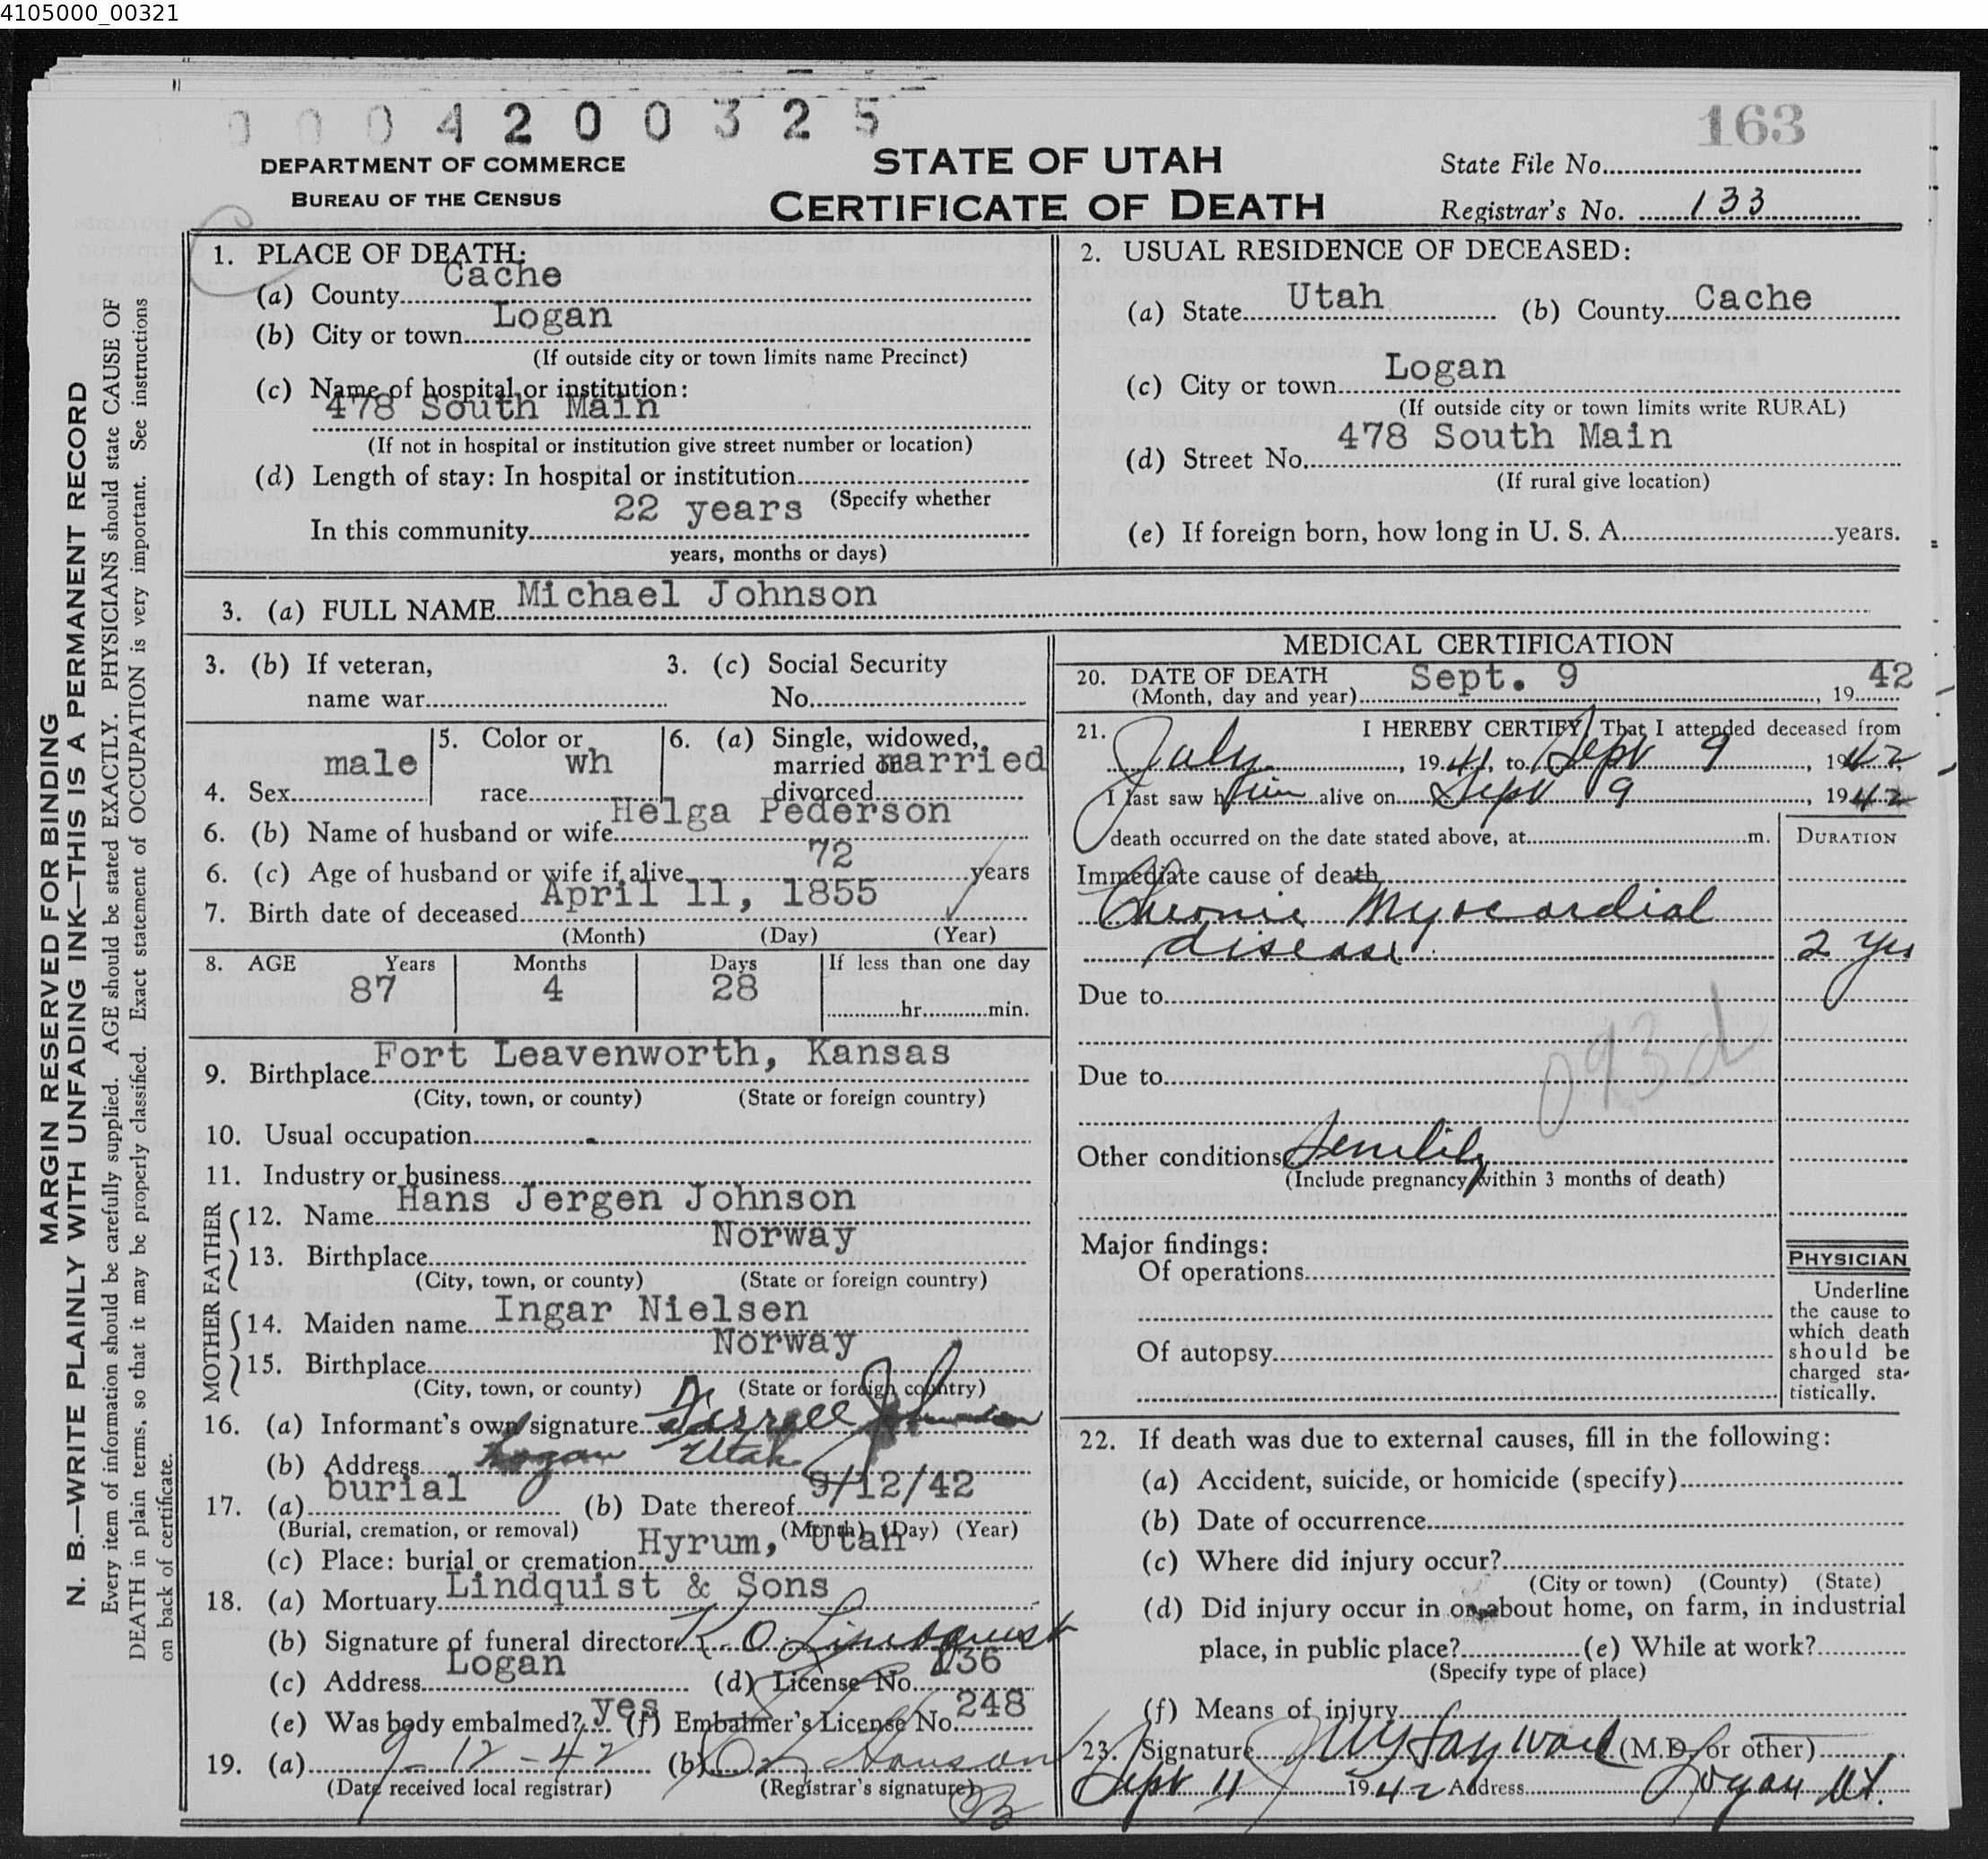 4105000_00321
0004200325
163
DEPARTMENT OF COMMERCE
BUREAU OF THE CENSUS
STATE OF UTAH
CERTIFICATE OF DEATH
State File No.
Registrar's No. 133
MARGIN RESERVED FOR BINDING
N. B.—WRITE PLAINLY WITH UNFADING INK—THIS IS A PERMANENT RECORD
Every item of information should be carefully supplied. AGE should be stated EXACTLY. PHYSICIANS should state CAUSE OF
DEATH in plain terms, so that it may be properly classified. Exact statement of OCCUPATION is very important. See instructions
on back of certificate.
1. PLACE OF DEATH:
(a) County Cache
(b) City or town Logan
(If outside city or town limits name Precinct)
(c) Name of hospital or institution:
478 South Main
(If not in hospital or institution give street number or location)
(d) Length of stay: In hospital or institution
(Specify whether
In this community 22 years
years, months or days)
2. USUAL RESIDENCE OF DECEASED:
(a) State Utah (b) County Cache
(c) City or town Logan
(If outside city or town limits write RURAL)
(d) Street No. 478 South Main
(If rural give location)
(e) If foreign born, how long in U. S. A. years.
3. (a) FULL NAME Michael Johnson
3. (b) If veteran,
name war
3. (c) Social Security
No.
4. Sex male
5. Color or
race wh
6. (a) Single, widowed,
married or married
divorced
6. (b) Name of husband or wife Helga Pederson
6. (c) Age of husband or wife if alive 72 years
7. Birth date of deceased April 11, 1855
(Month) (Day) (Year)
8. AGE Years Months Days If less than one day
87 4 28
hr. min.
9. Birthplace Fort Leavenworth, Kansas
(City, town, or county) (State or foreign country)
10. Usual occupation -
11. Industry or business
FATHER
12. Name Hans Jergen Johnson
13. Birthplace Norway
(City, town, or county) (State or foreign country)
MOTHER
14. Maiden name Ingar Nielsen
15. Birthplace Norway
(City, town, or county) (State or foreign country)
16. (a) Informant's own signature Darrell Johnson
(b) Address Logan Utah
17. (a) burial (b) Date thereof 9/12/42
(Burial, cremation, or removal) (Month) (Day) (Year)
(c) Place: burial or cremation Hyrum, Utah
18. (a) Mortuary Lindquist & Sons
(b) Signature of funeral director O. Lindquist
(c) Address Logan (d) License No. 136
(e) Was body embalmed? yes (f) Embalmer's License No. 248
19. (a) 9-12-42 (b) Hanson
(Date received local registrar) (Registrar's signature)
MEDICAL CERTIFICATION
20. DATE OF DEATH
(Month, day and year) Sept. 9, 1942
21. I HEREBY CERTIFY, That I attended deceased from
July, 1941, to Sept 9, 1942
I last saw him alive on Sept 9, 1942
death occurred on the date stated above, at m.
DURATION
Immediate cause of death
Chronic Myocardial
disease 2 yrs
Due to
093d
Due to
Other conditions Senility
(Include pregnancy within 3 months of death)
Major findings:
Of operations
Of autopsy
PHYSICIAN
Underline
the cause to
which death
should be
charged sta-
tistically.
22. If death was due to external causes, fill in the following:
(a) Accident, suicide, or homicide (specify)
(b) Date of occurrence
(c) Where did injury occur?
(City or town) (County) (State)
(d) Did injury occur in or about home, on farm, in industrial
place, in public place? (e) While at work?
(Specify type of place)
(f) Means of injury
23. Signature Hayward (M.D. or other)
Sept 11 1942 Address Logan Ut.